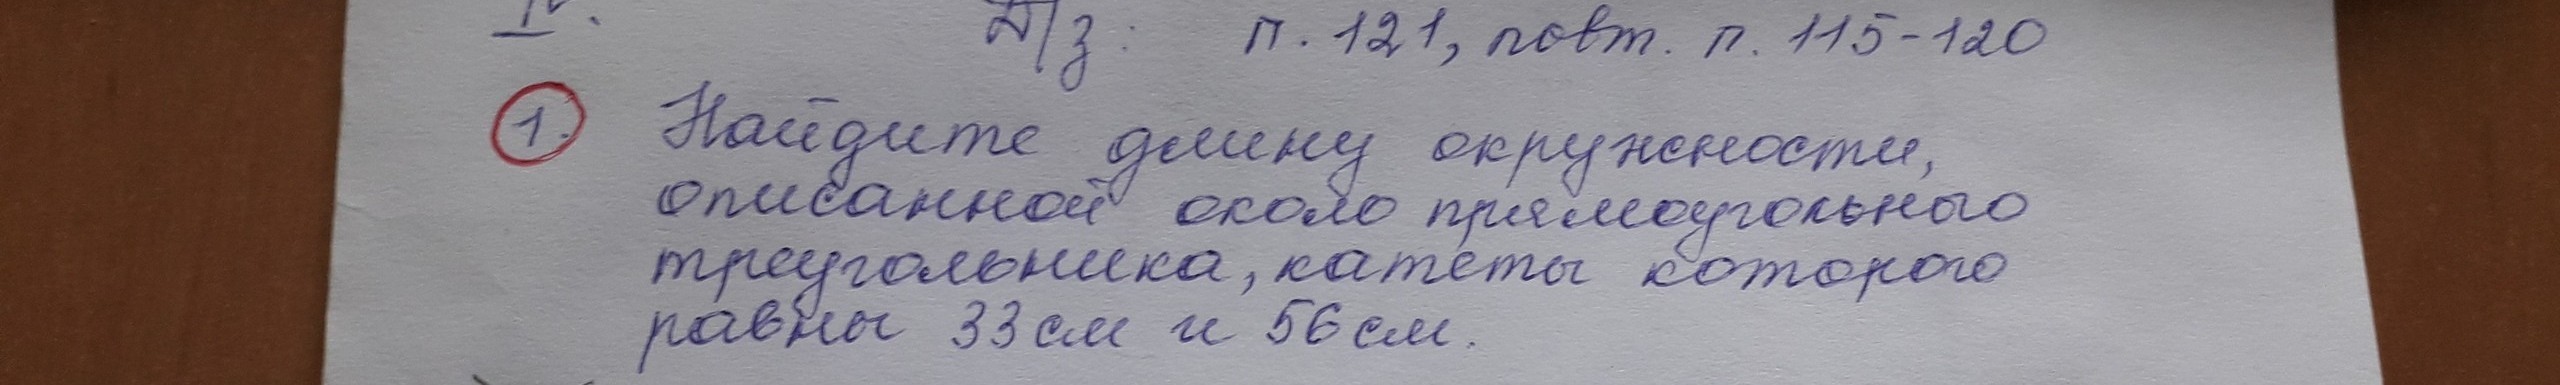 IV.
Д/з: п. 121, повт. п. 115-120
1. Найдите длину окружности,
описанной около прямоугольного
треугольника, катеты которого
равны 33 см и 56 см.